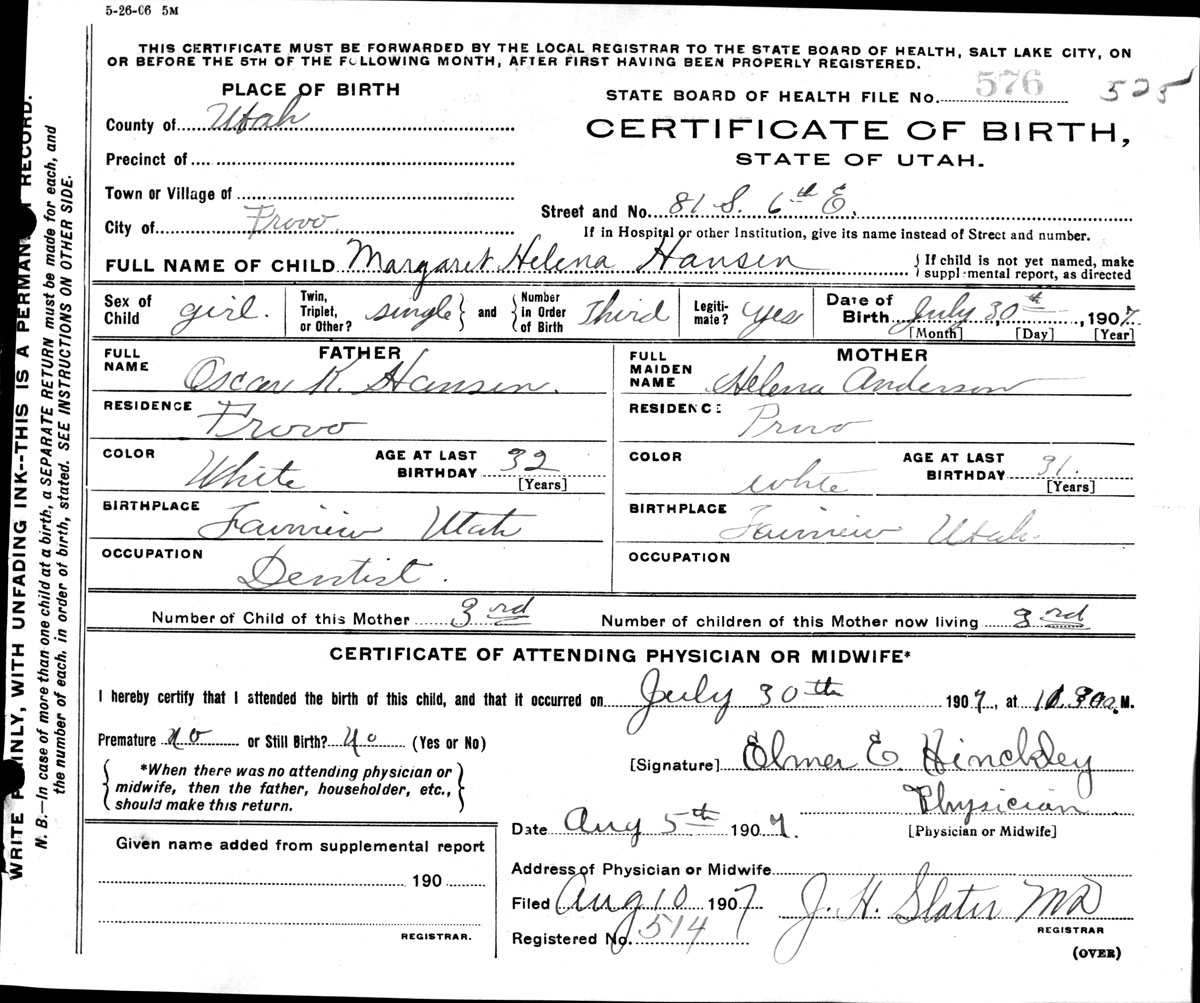 5-26-06 5M
THIS CERTIFICATE MUST BE FORWARDED BY THE LOCAL REGISTRAR TO THE STATE BOARD OF HEALTH, SALT LAKE CITY, ON
OR BEFORE THE 5TH OF THE FOLLOWING MONTH, AFTER FIRST HAVING BEEN PROPERLY REGISTERED.
PLACE OF BIRTH
STATE BOARD OF HEALTH FILE No. 576 525
County of Utah
CERTIFICATE OF BIRTH,
STATE OF UTAH.
Precinct of
Town or Village of
Street and No. 81 S. 6th E.
City of Provo
If in Hospital or other Institution, give its name instead of Street and number.
FULL NAME OF CHILD Margaret Helena Hansen { If child is not yet named, make supplemental report, as directed
Sex of Child girl. Twin, Triplet, or Other? single } and { Number in Order of Birth Third Legitimate? yes Date of Birth July 30th, 1907
[Month] [Day] [Year]
FATHER
FULL NAME Oscar K. Hansen.
RESIDENCE Provo
COLOR White AGE AT LAST BIRTHDAY 32
[Years]
BIRTHPLACE Fairview Utah
OCCUPATION Dentist.
MOTHER
FULL MAIDEN NAME Helena Anderson
RESIDENCE Provo
COLOR White AGE AT LAST BIRTHDAY 31.
[Years]
BIRTHPLACE Fairview Utah.
OCCUPATION
Number of Child of this Mother 3rd Number of children of this Mother now living 3rd
CERTIFICATE OF ATTENDING PHYSICIAN OR MIDWIFE*
I hereby certify that I attended the birth of this child, and that it occurred on July 30th 1907, at M.
Premature no or Still Birth? No (Yes or No)
[Signature] Elmer E. Hinckley
{ *When there was no attending physician or
midwife, then the father, householder, etc.,
should make this return. }
Physician
Date Aug 5th 1907. [Physician or Midwife]
Given name added from supplemental report
190
REGISTRAR.
Address of Physician or Midwife
Filed Aug 10 1907 J. H. Slater MD
REGISTRAR
Registered No. 514
(OVER)
WRITE PLAINLY, WITH UNFADING INK--THIS IS A PERMANENT RECORD.
N. B.—In case of more than one child at a birth, a SEPARATE RETURN must be made for each, and
the number of each, in order of birth, stated. SEE INSTRUCTIONS ON OTHER SIDE.